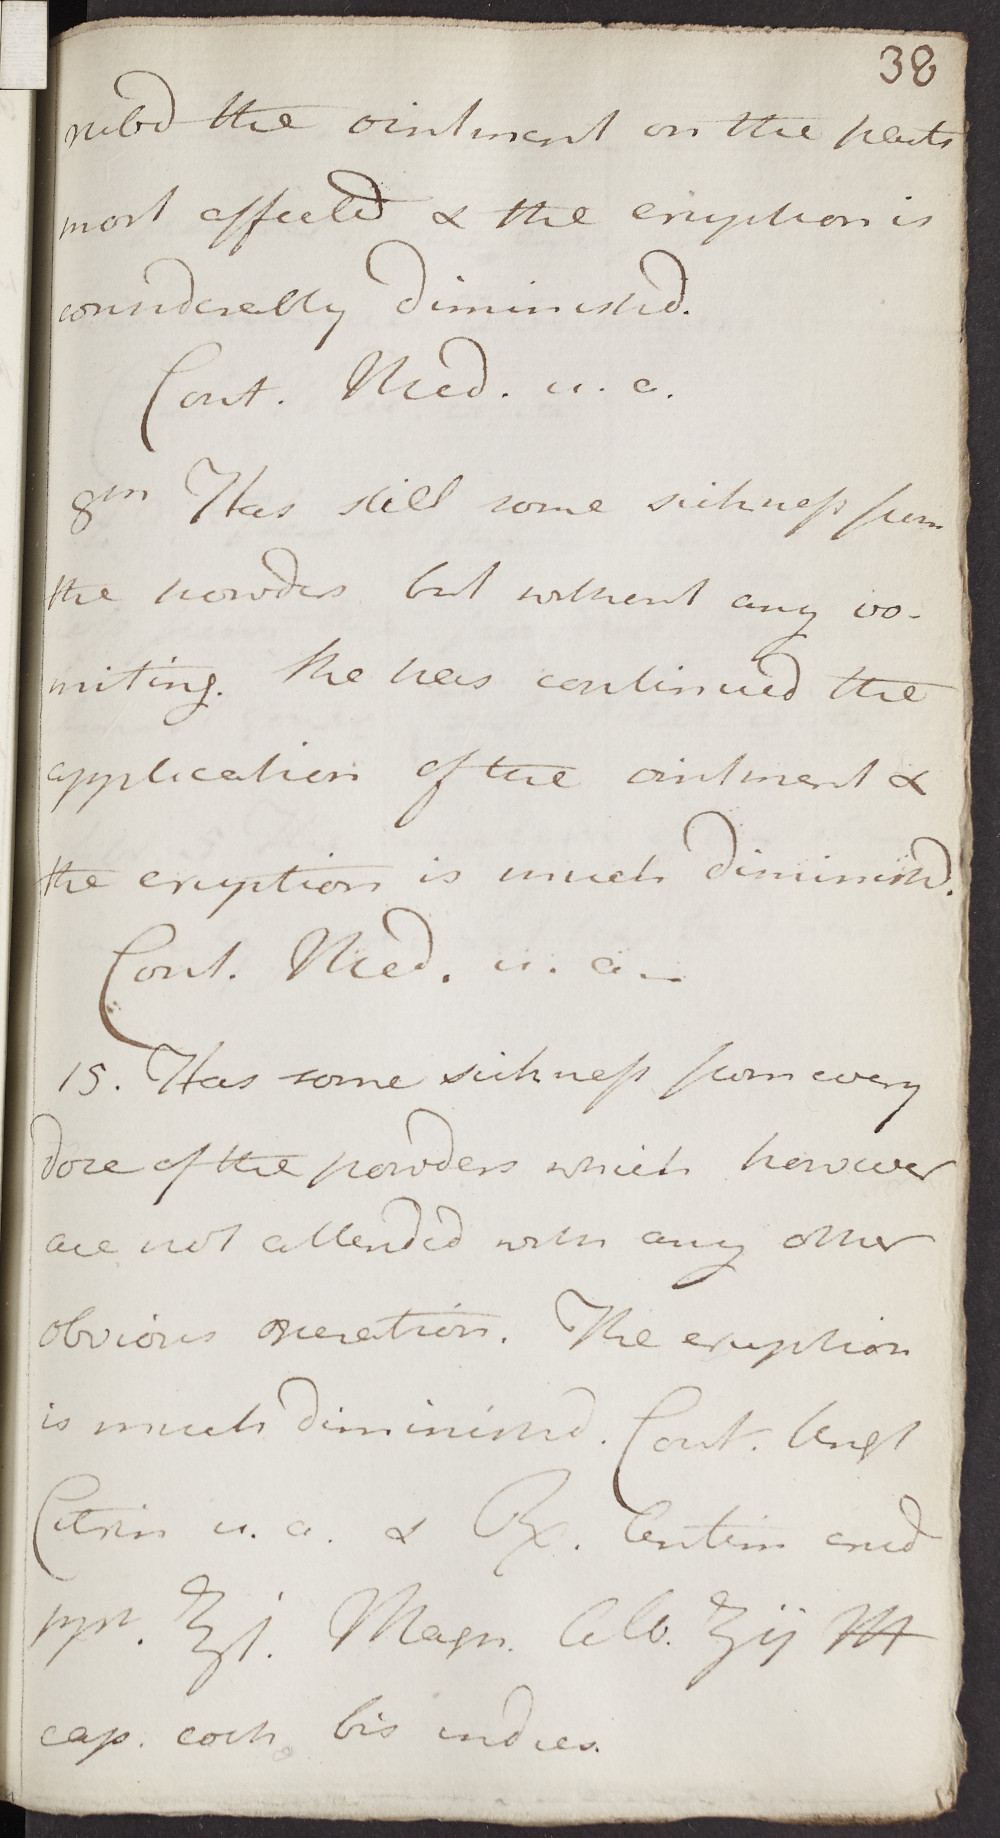 38
rub'd the ointment on the parts
most affected & the eruption is
considerably diminish'd.
Cont. Med. u. a.
8th Has still some sickness from
the powders but without any vo-
miting. She has continued the
application of the ointment &
the eruption is much diminish'd.
Cont. Med. u. a.
15. Has some sickness from every
dose of the powders which however
are not attended with any other
obvious operation. The eruption
is much diminish'd. Cont. Ungt
Citrin u. a. & ℞. Antim crud
ppt. ℥j. Magn. Alb. ℥ij M
cap. coch bis indies.